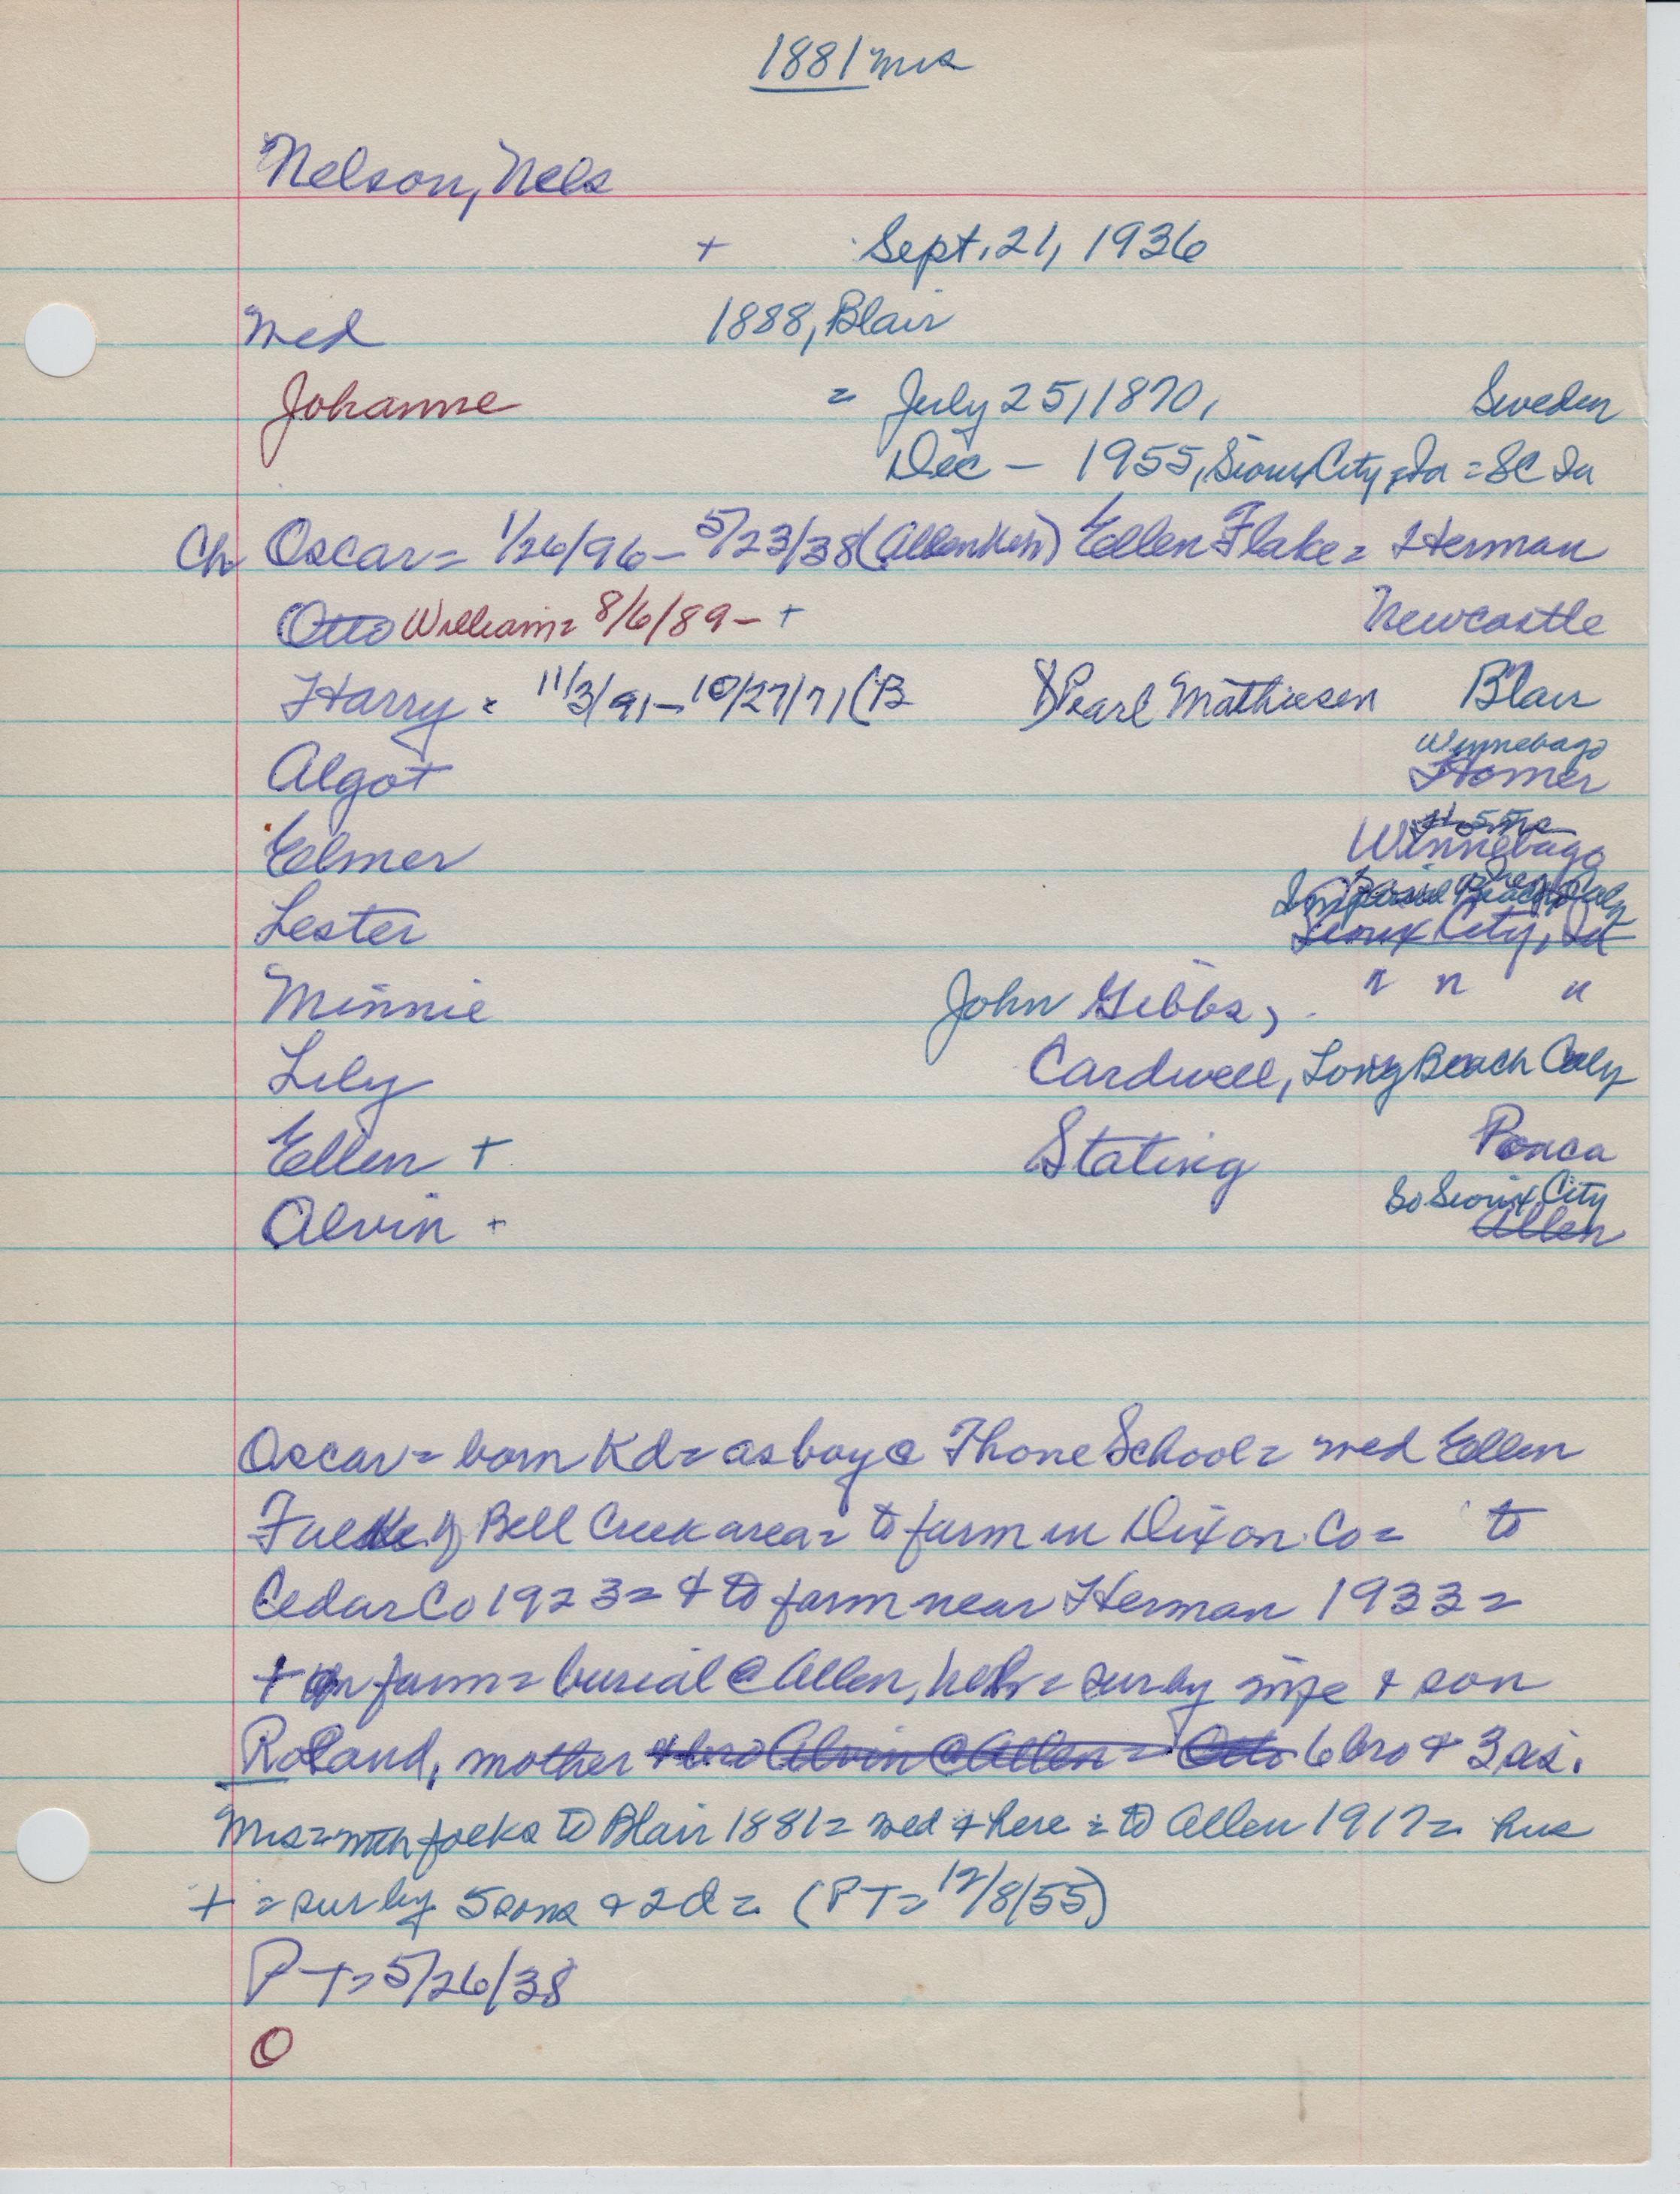 1881 mrs
Nelson, Nels
+ Sept. 21, 1936
Med 1888, Blair
Johanne = July 25, 1870, Sweden
Dec – 1955, Sioux City, Ia = SC Ia
Ch Oscar = 1/26/96 – 5/23/38 (Allen Neb) Ellen Flake = Herman
Otto William = 8/6/89 – + Newcastle
Harry = 11/3/91 – 10/27/71 (B ) Pearl Mathiesen Blair
Winnebago
Algot Homer
Elmer Winnebago
Imperial Beach Caly
Lester Sioux City, Ia
Minnie John Gibbs, " " "
Lily Cardwell, Long Beach Caly
Ellen + Stating Ponca
So Sioux City
Alvin + Allen
Oscar = born Kd = as boy @ Thone School = med Ellen
of Bell Creek area = to farm in Dixon Co = to
Cedar Co 1923 = & to farm near Herman 1933 =
+ on farm = burial @ Allen, Nebr = sur by wife & son
Roland, mother & bro Alvin @ Allen = Otto 6 bro & 3 sis.
Mrs = with folks to Blair 1881 = med & here = to Allen 1917 = hus
+ = sur by 5 sons & 2 d = (PT = 12/8/55)
PT = 5/26/38
O